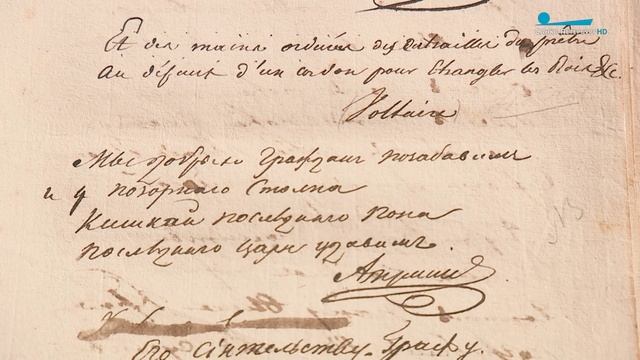 Et des mains ourdies des entrailles du prêtre
Au défaut d'un cordon pour étrangler les Rois &c.
Voltaire
Мы добрыхъ Гражданъ позабавимъ
и у позорнаго Столпа
Кишкой послѣдняго Попа
послѣдняго Царя удавимъ.
Его Сіятельству Графу.
HD